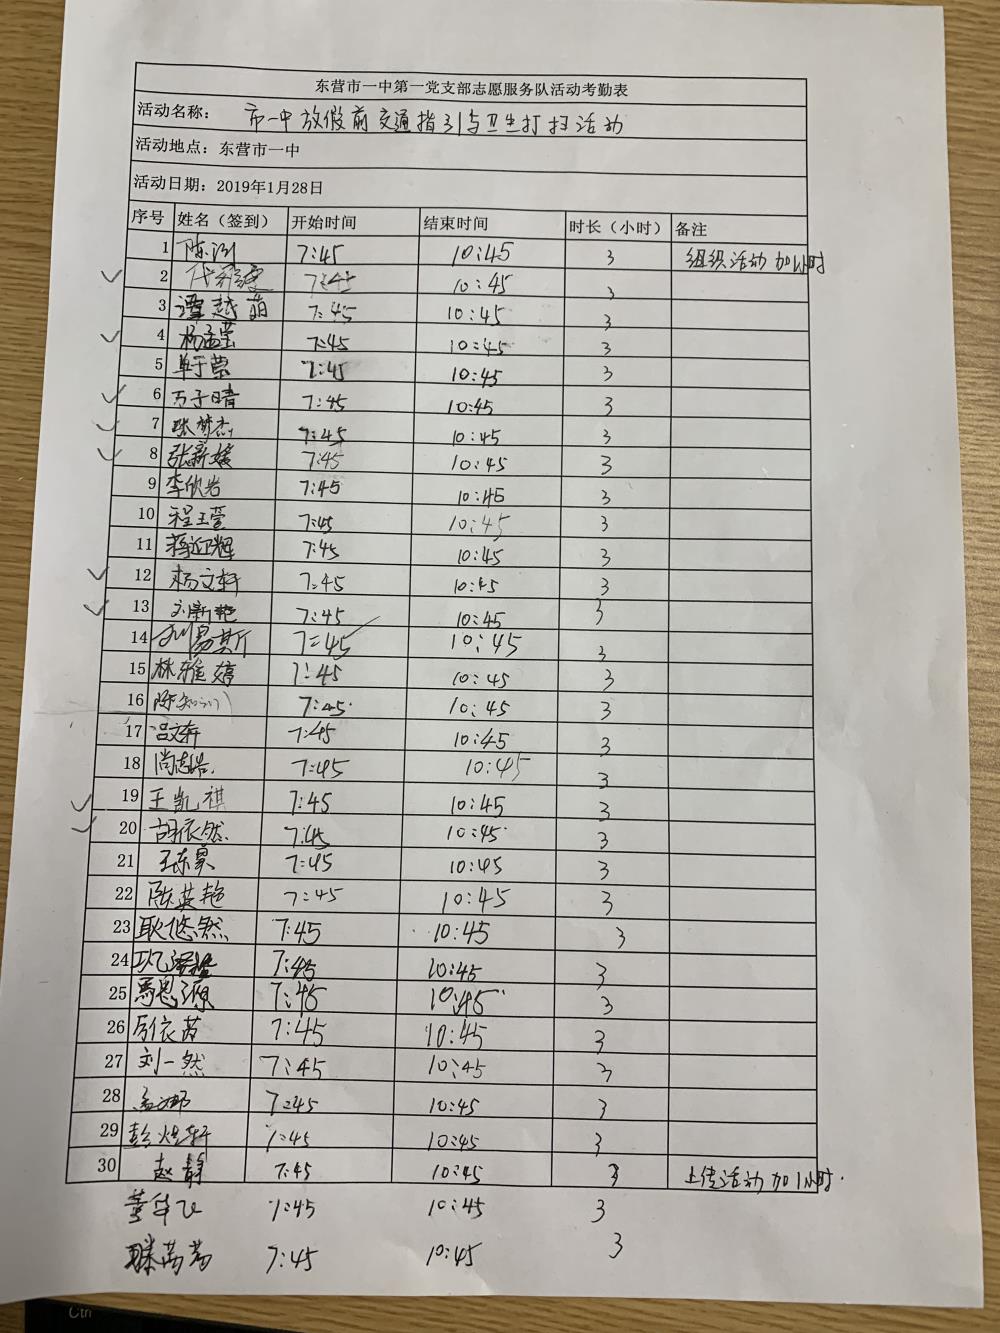 东营市一中第一党支部志愿服务队活动考勤表
活动名称： 市一中放假前交通指引与卫生打扫活动
活动地点：东营市一中
活动日期：2019年1月28日
序号 姓名（签到） 开始时间 结束时间 时长（小时） 备注
1 陈 7:45 10:45 3 组织活动加1小时
2 代 7:45 10:45 3
3 谭越萌 7:45 10:45 3
4 杨孟莹 7:45 10:45 3
5 单于萦 7:45 10:45 3
6 万子晴 7:45 10:45 3
7 张梦杰 7:45 10:45 3
8 张新媛 7:45 10:45 3
9 李欣岩 7:45 10:45 3
10 程玉莹 7:45 10:45 3
11 蒋迎辉 7:45 10:45 3
12 杨文轩 7:45 10:45 3
13 刘新艳 7:45 10:45 3
14 刘易斯 7:45 10:45 3
15 林雅婷 7:45 10:45 3
16 陈知 7:45 10:45 3
17 吕文轩 7:45 10:45 3
18 尚志浩 7:45 10:45 3
19 王凯祺 7:45 10:45 3
20 胡依然 7:45 10:45 3
21 王东昊 7:45 10:45 3
22 陈英艳 7:45 10:45 3
23 耿悠然 7:45 10:45 3
24 7:45 10:45 3
25 馬思源 7:45 10:45 3
26 依茜 7:45 10:45 3
27 刘一然 7:45 10:45 3
28 孟娜 7:45 10:45 3
29 彭煜轩 7:45 10:45 3
30 赵静 7:45 10:45 3 上传活动加1小时
董华飞 7:45 10:45 3
滕茜茜 7:45 10:45 3
Ctrl